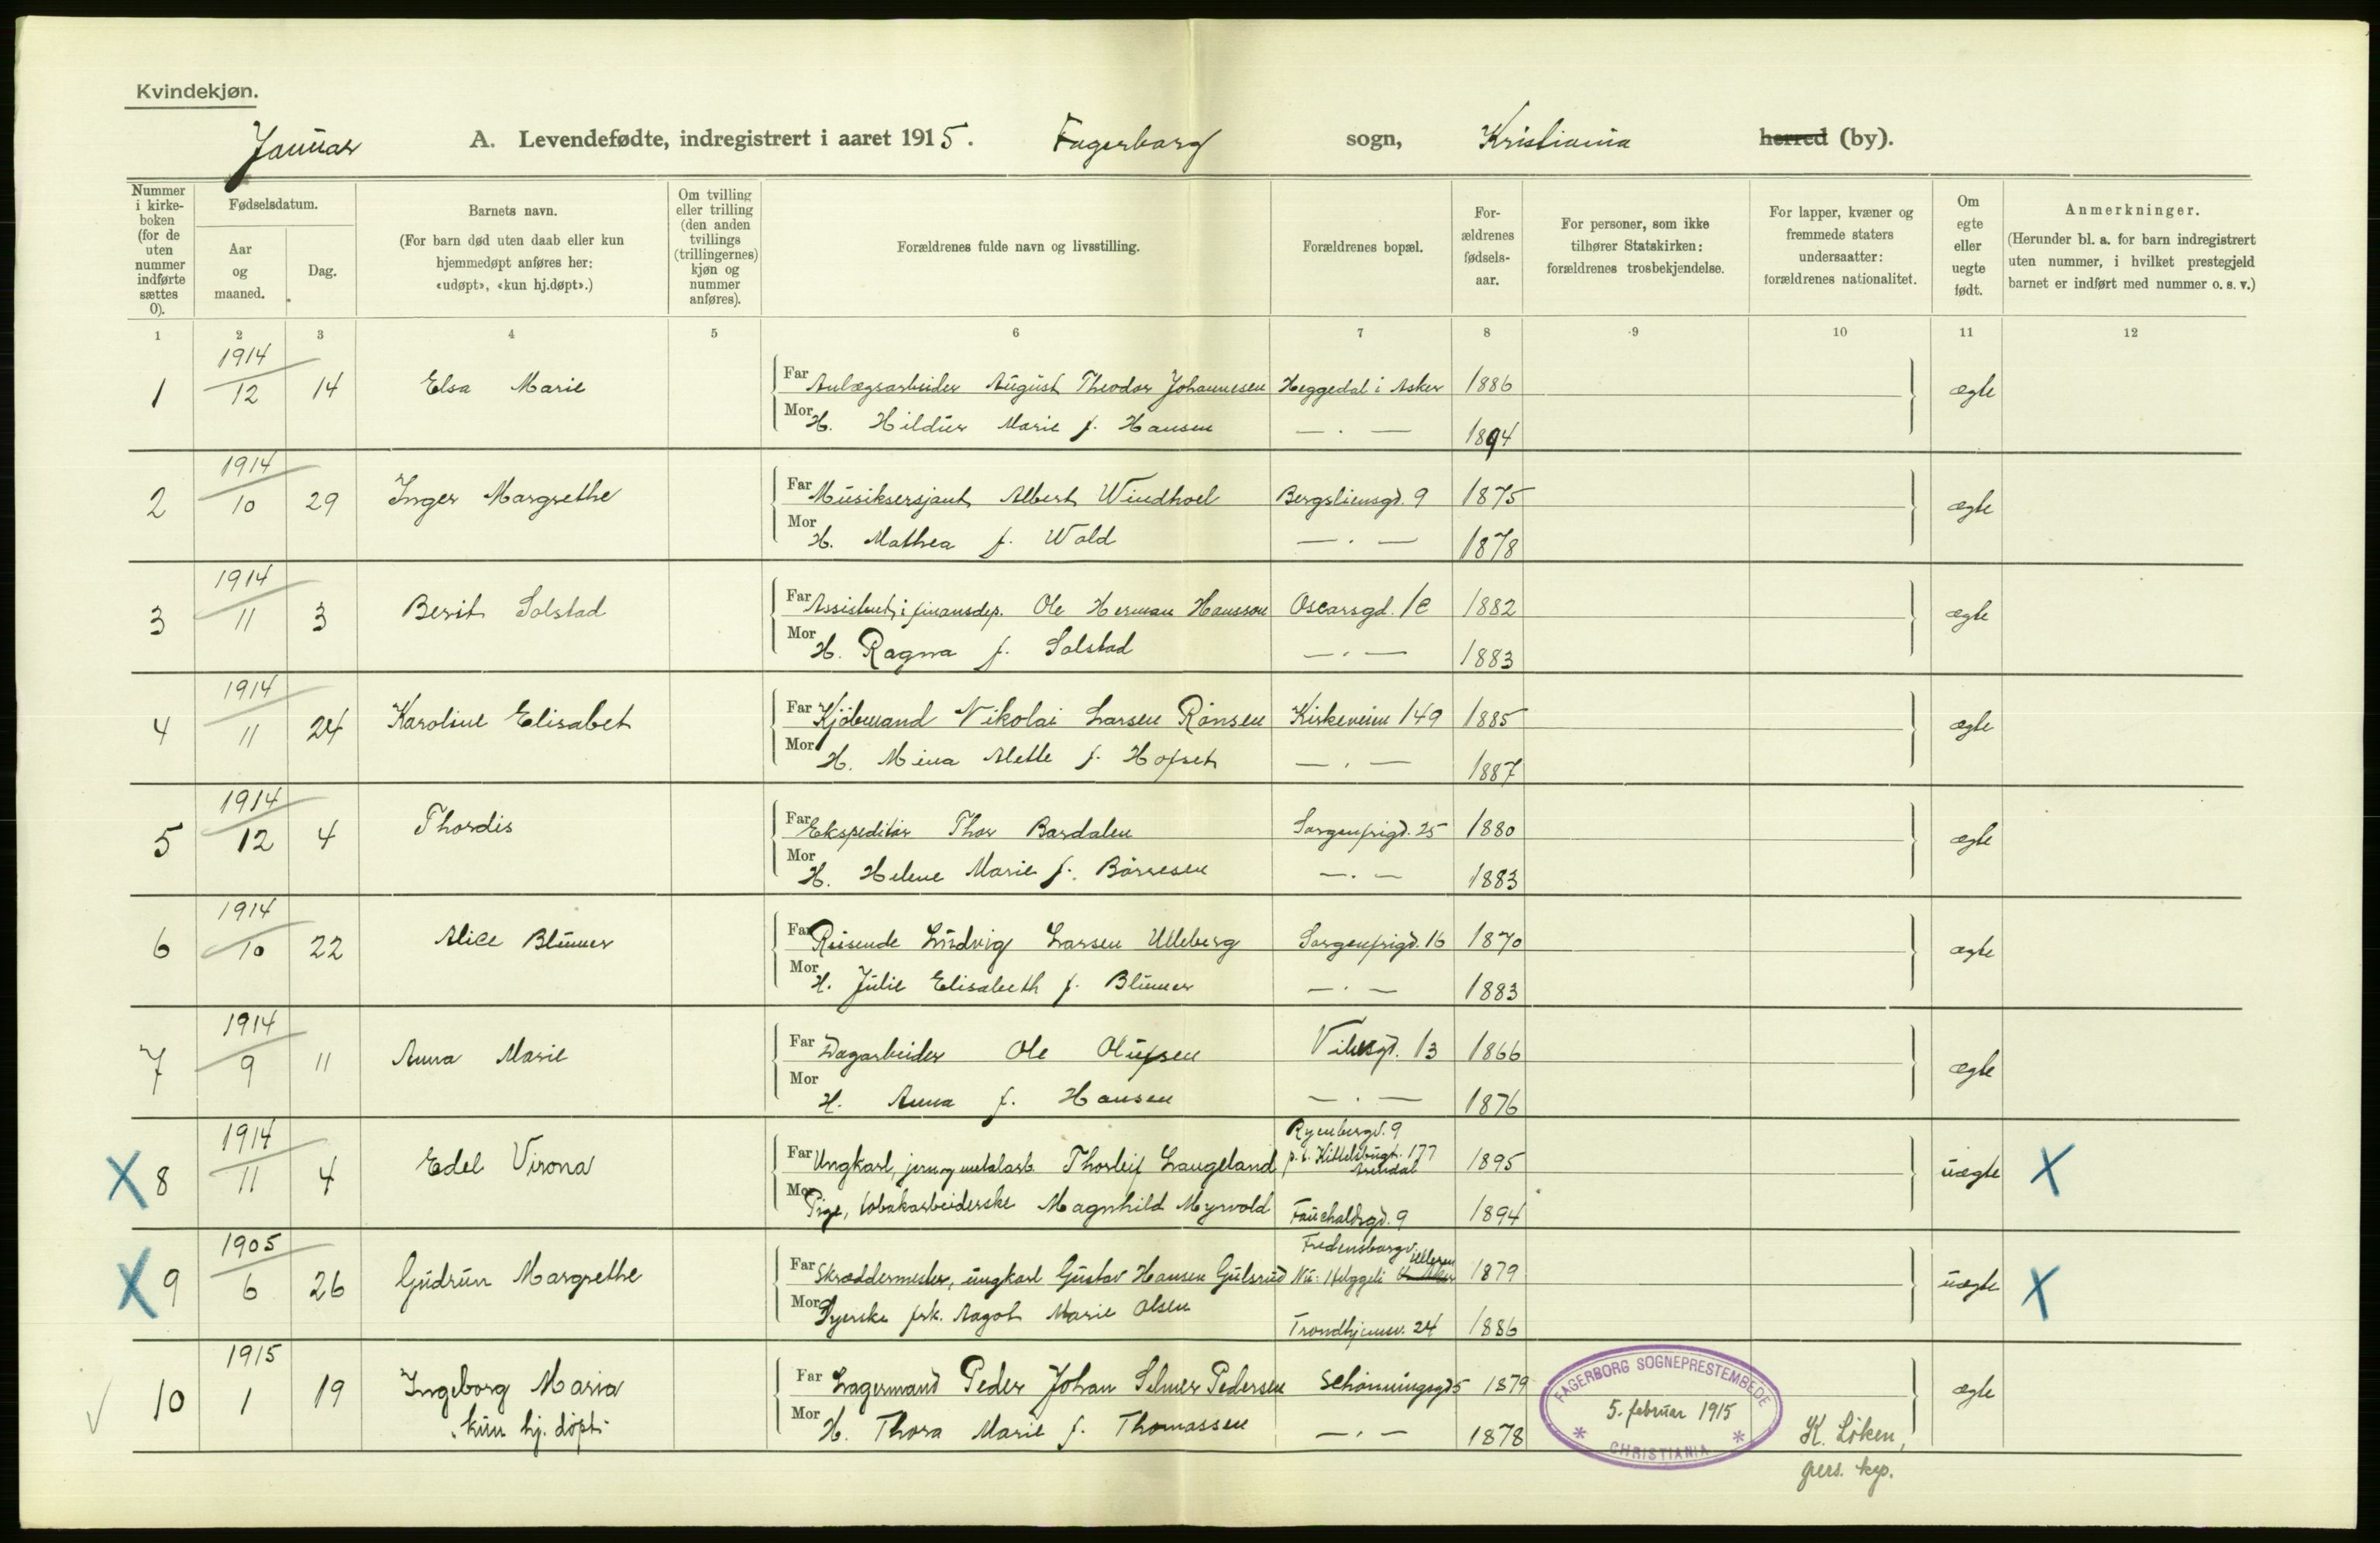 Kvindekjøn.
Januar A. Levendefødte, indregistrert i aaret 1915. Fagerborg sogn, Kristiania herred (by).
Nummer i kirkeboken (for de uten nummer indførte sættes 0).
Fødselsdatum.
Aar og maaned.
Dag.
Barnets navn.
(For barn død uten daab eller kun hjemmedøpt anføres her: «udøpt», «kun hj.døpt».)
Om tvilling eller trilling (den anden tvillings (trillingernes) kjøn og nummer anføres).
Forældrenes fulde navn og livsstilling.
Forældrenes bopæl.
Forældrenes fødselsaar.
For personer, som ikke tilhører Statskirken: forældrenes trosbekjendelse.
For lapper, kvæner og fremmede staters undersaatter: forældrenes nationalitet.
Om egte eller uegte født.
Anmerkninger.
(Herunder bl. a. for barn indregistrert uten nummer, i hvilket prestegjeld barnet er indført med nummer o. s. v.)
1 2 3 4 5 6 7 8 9 10 11 12
1 1914 12 14 Elsa Marie Far Anlægsarbeider August Theodor Johannesen Heggedal i Asker 1886 ægte
Mor H. Hildur Marie f. Hansen — . — 1894
2 1914 10 29 Inger Margrethe Far Musiksersjant Albert Windhoel Bergsliensgd. 9 1875 ægte
Mor H. Mathea f. Wold — . — 1878
3 1914 11 3 Berit Solstad Far Assistent i finansdep. Ole Herman Hansson Oscarsgd. 1c 1882 ægte
Mor H. Ragna f. Solstad — . — 1883
4 1914 11 24 Karoline Elisabet Far Kjøbmand Nikolai Larsen Rønsen Kirkeveien 149 1885 ægte
Mor H. Mina Alette f. Hofset — . — 1887
5 1914 12 4 Thordis Far Ekspeditør Thor Bardalen Sorgenfrigd. 25 1880 ægte
Mor H. Helene Marie f. Børresen — . — 1883
6 1914 10 22 Alice Blümer Far Reisende Ludvig Larsen Ulleberg Sorgenfrigd. 16 1870 ægte
Mor H. Julie Elisabeth f. Blümer — . — 1883
7 1914 9 11 Anna Marie Far Dagarbeider Ole Olufsen Vibesgd. 13 1866 ægte
Mor H. Anna f. Hansen — . — 1876
X 8 1914 11 4 Edel Virona Far Ungkarl, jern og metalarb. Thorleif Langeland Ryenbergv. 9 p. t. Kittelsbugt. 177 Arendal 1895 uægte X
Mor Pige, tobakarbeiderske Magnhild Myrvold Fauchaldsgd. 9 1894
X 9 1905 6 26 Gudrun Margrethe Far Skræddermester, ungkarl Gustav Hansen Gulsrud Fredensborgv. Nu: Helggeli 1879 uægte X
Mor Syerske frk. Aagot Marie Olsen Trondhjemsv. 24 1886
10 1915 1 19 Ingeborg Maria Far Lagermand Peder Johan Selmer Pedersen Schønningsgd 5 1879 ægte
"kun hj. døpt" Mor H. Thora Marie f. Thomassen — . — 1878
FAGERBORG SOGNEPRESTEMBEDE
5. februar 1915
* CHRISTIANIA *
K. Löken,
pers. kap.